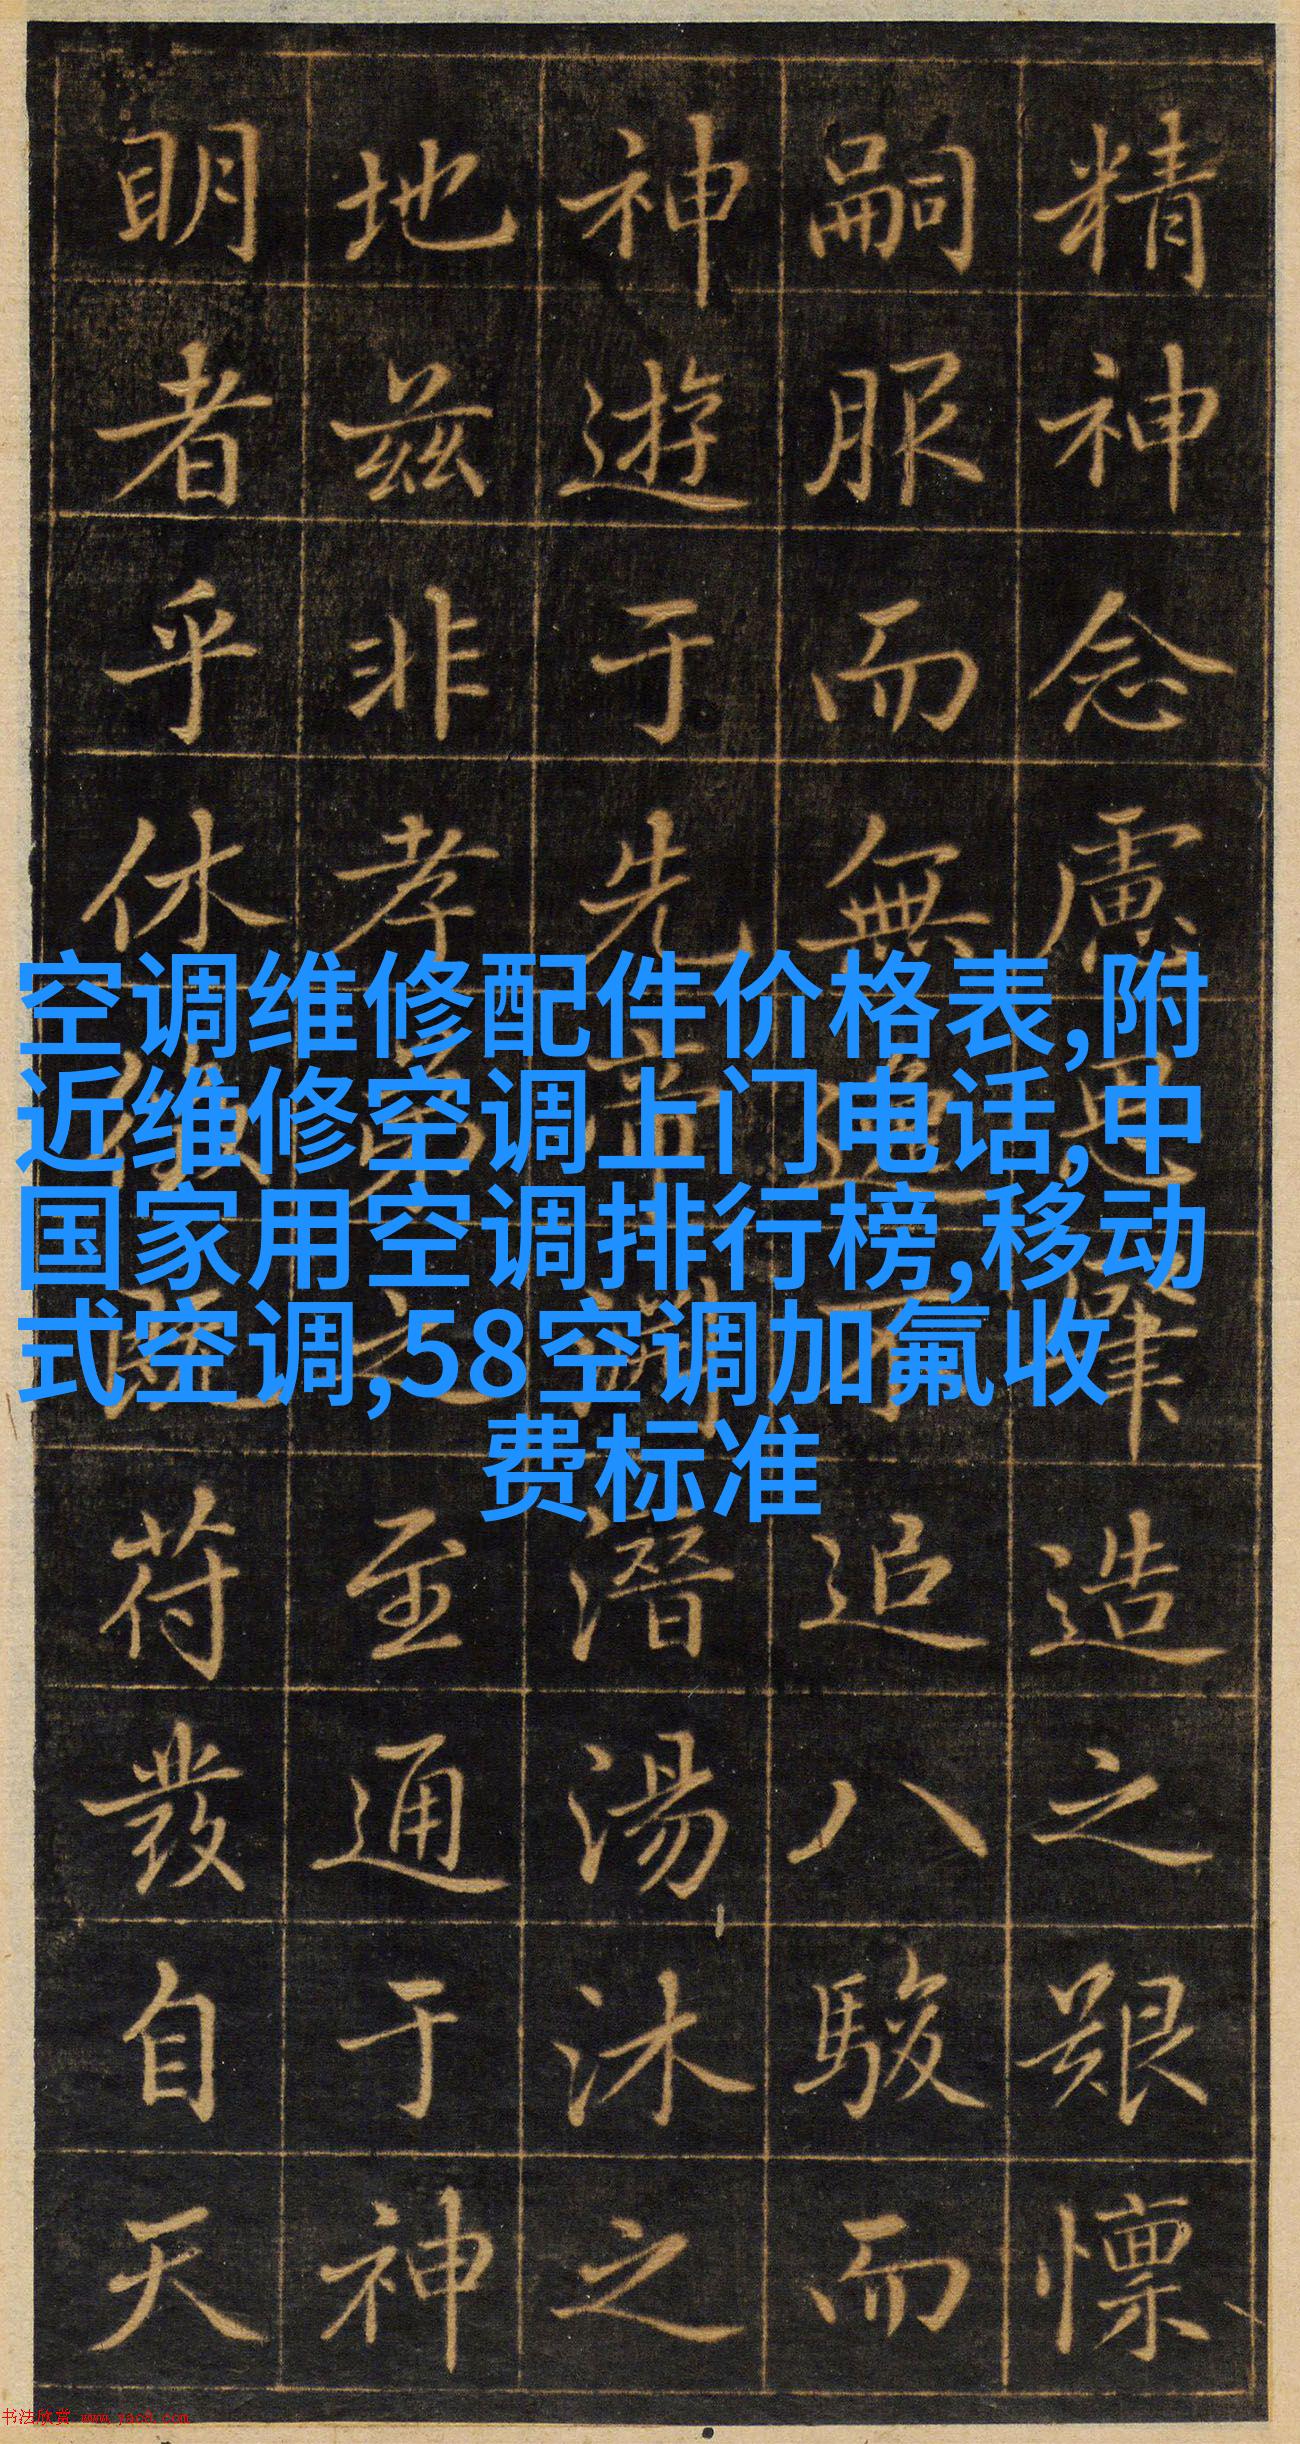 精神念慮造之艱懍
嗣服而無追八駿而
神遊于先潛湯沐之
地兹非孝至通于神
明者乎休苻發自天
空调维修配件价格表,附
近维修空调上门电话,中
国家用空调排行榜,移动
式空调,58空调加氟收
费标准
书法欣赏 www.yac8.com